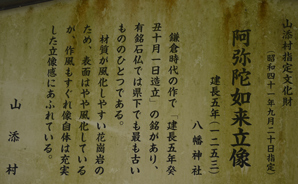 山添村指定文化財
（昭和四十一年九月二十日指定）
阿弥陀如来立像
建長五年（一二五三）
八幡神社
鎌倉時代の作で「建長五年癸
丑十月一日造立」の銘があり、
有銘石仏では県下でも最も古い
もののひとつである。
材質が風化しやすい花崗岩の
ため、表面はやや風化している
が、作風もすぐれ像自体は充実
した立像感にあふれている。
山添村